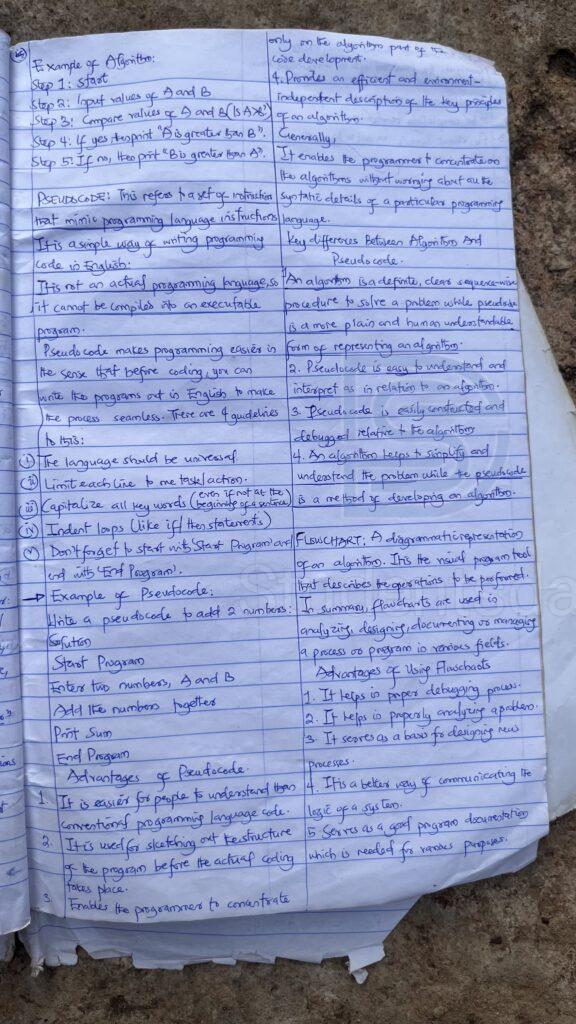 Example of Algorithm:
Step 1: start
Step 2: Input values of A and B
Step 3: Compare values of A and B (Is A>B?)
Step 4: If yes then print "A is greater than B".
Step 5: If no, then print "B is greater than A".
PSEUDOCODE: This refers to a set of instruction
that mimic programming language instructions
It is a simple way of writing programming
code in English.
It is not an actual programming language, so
it cannot be compiled into an executable
program.
Pseudocode makes programming easier in
the sense that before coding, you can
write the programs out in English to make
the process seamless. There are 4 guidelines
to this:
(i) The language should be universal
(ii) Limit each line to one task/action.
(iii) Capitalize all key words (even if not at the
beginning of a sentence)
(iv) Indent loops (like if/then statements)
(v) Don't forget to start with 'Start Program' and
end with 'End Program'.
→ Example of Pseudocode:
Write a pseudocode to add 2 numbers:
Solution
Start Program
Enter two numbers, A and B
Add the numbers together
Print Sum
End Program
Advantages of Pseudocode.
1. It is easier for people to understand than
conventional programming language code.
2. It is used for sketching out the structure
of the program before the actual coding
takes place.
3. Enables the programmer to concentrate
only on the algorithm part of the
code development.
4. Provides an efficient and environment-
independent description of the key principles
of an algorithm.
Generally,
It enables the programmer to concentrate on
the algorithms without worrying about all the
syntatic details of a particular programming
language.
Key differences Between Algorithm And
Pseudocode.
1 An algorithm is a definite, clear sequence-wise
procedure to solve a problem while pseudocode
is a more plain and human understandable
form of representing an algorithm.
2. Pseudocode is easy to understand and
interpret as in relation to an algorithm.
3. Pseudocode is easily constructed and
debugged relative to the algorithm
4. An algorithm helps to simplify and
understand the problem while the pseudocode
is a method of developing an algorithm.
FLOWCHART: A diagrammatic representation
of an algorithm. It is the visual program tool
that describes the operations to be performed.
In summary, flowcharts are used in
analyzing, designing, documenting or managing
a process or program in various fields.
Advantages of Using Flowcharts
1. It helps in proper debugging process.
2. It helps in properly analyzing a problem.
3. It serves as a basis for designing new
processes.
4. It is a better way of communicating the
logic of a system.
5. Serves as a good program documentation
which is needed for various purposes.